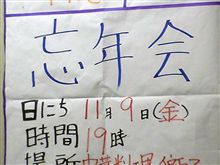 忘年会
日にち 11月9日(金)
時間 19時
場所 中華料理